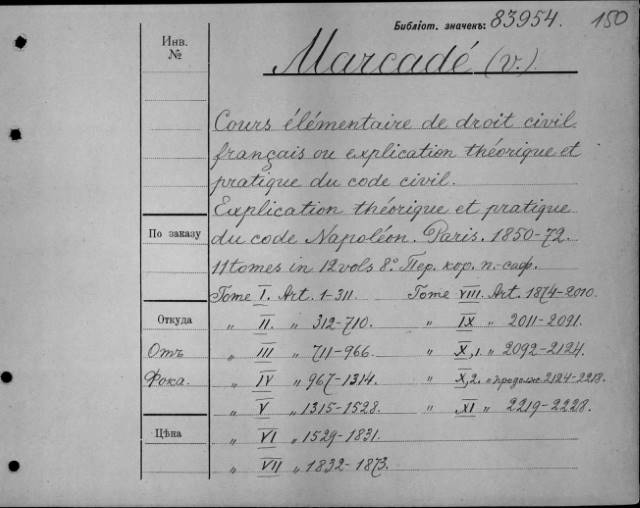 Библiот. значекъ: 83954. 150
Инв. №
Marcadé (V.).
Cours élémentaire de droit civil
français ou explication théorique et
pratique du code civil.
Explication théorique et pratique
По заказу
du code Napoléon. Paris. 1850-72.
11 tomes in 12 vols 8° Пер. кор. п.-саф.
Tome I. Art. 1-311. Tome VIII. Art. 1874-2010.
Откуда
„ II. „ 312-710. „ IX „ 2011-2091.
Отъ „ III „ 711-966. „ X,1. „ 2092-2124.
Фока. „ IV „ 967-1314. „ X,2. „ продолж 2124-2218.
„ V „ 1315-1528. „ XI „ 2219-2228.
Цѣна
„ VI „ 1529-1831.
„ VII „ 1832-1873.